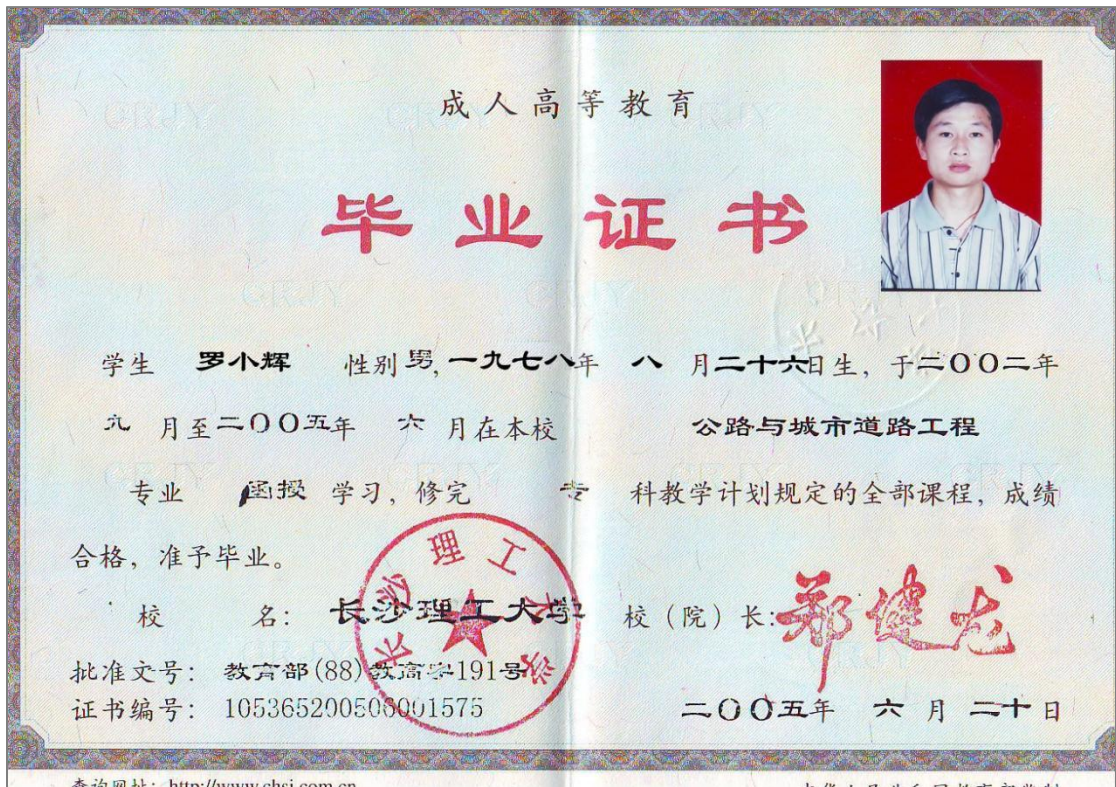 成人高等教育
毕业证书
学生 罗小辉 性别 男, 一九七八年 八 月二十六日生, 于二〇〇二年
九 月至二〇〇五年 六 月在本校 公路与城市道路工程
专业 函授 学习, 修完 专 科教学计划规定的全部课程, 成绩
合格, 准予毕业。
校 名: 长沙理工大学 校(院)长: 郑健龙
长沙理工大学
批准文号: 教育部(88)教高字191号
证书编号: 105365200506001575
二〇〇五年 六 月 二十 日
查询网址: http://www.chsi.com.cn
中华人民共和国教育部监制